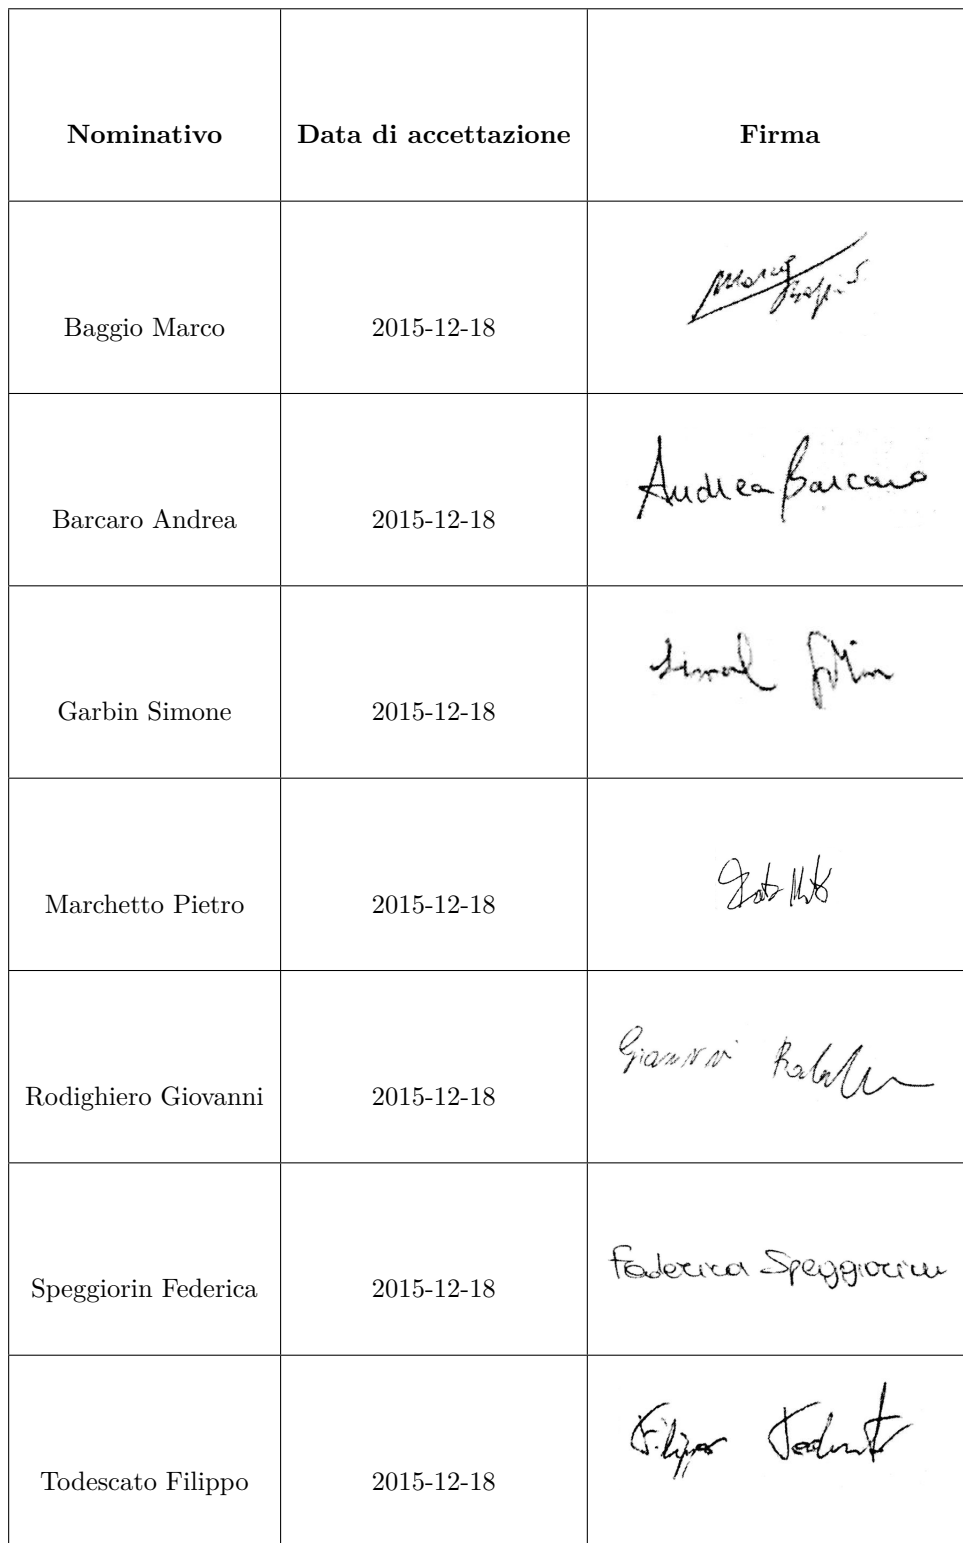 Nominativo Data di accettazione Firma
Baggio Marco 2015-12-18 Marco Baggio
Barcaro Andrea 2015-12-18 Andrea Barcaro
Garbin Simone 2015-12-18
Marchetto Pietro 2015-12-18
Rodighiero Giovanni 2015-12-18
Speggiorin Federica 2015-12-18 Federica Speggiorin
Todescato Filippo 2015-12-18 Filippo